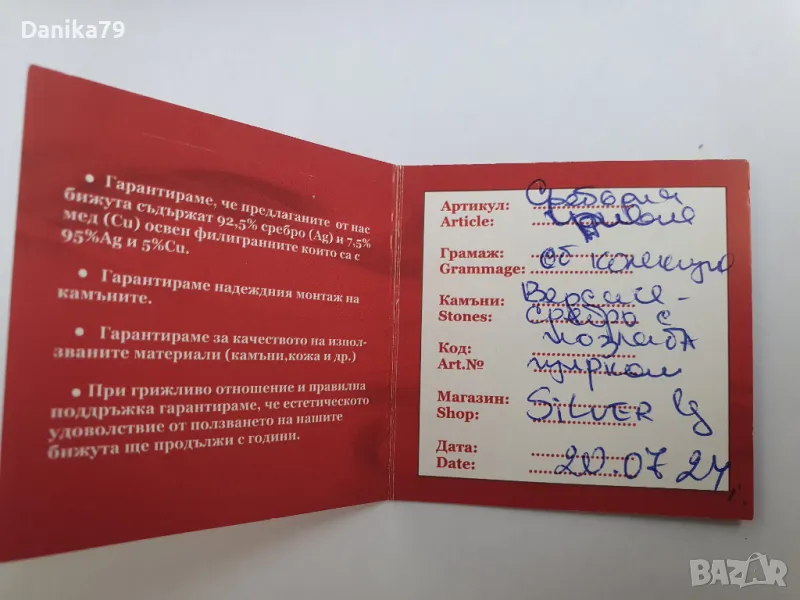 Danika79
• Гарантираме, че предлаганите от нас
бижута съдържат 92,5% сребро (Ag) и 7,5%
мед (Cu) освен филигранните които са с
95%Ag и 5%Cu.
• Гарантираме надеждния монтаж на
камъните.
• Гарантираме за качеството на изпол-
званите материали (камъни,кожа и др.)
• При грижливо отношение и правилна
поддръжка гарантираме, че естетическото
удоволствие от ползването на нашите
бижута ще продължи с години.
Артикул:
Article:
Грамаж: от
Grammage:
Камъни: Версаче -
Stones: сребро с
Код: позлата
Art.№ циркони
Магазин:
Shop: SILVER
Дата:
Date: 20.07 24
BAZAR